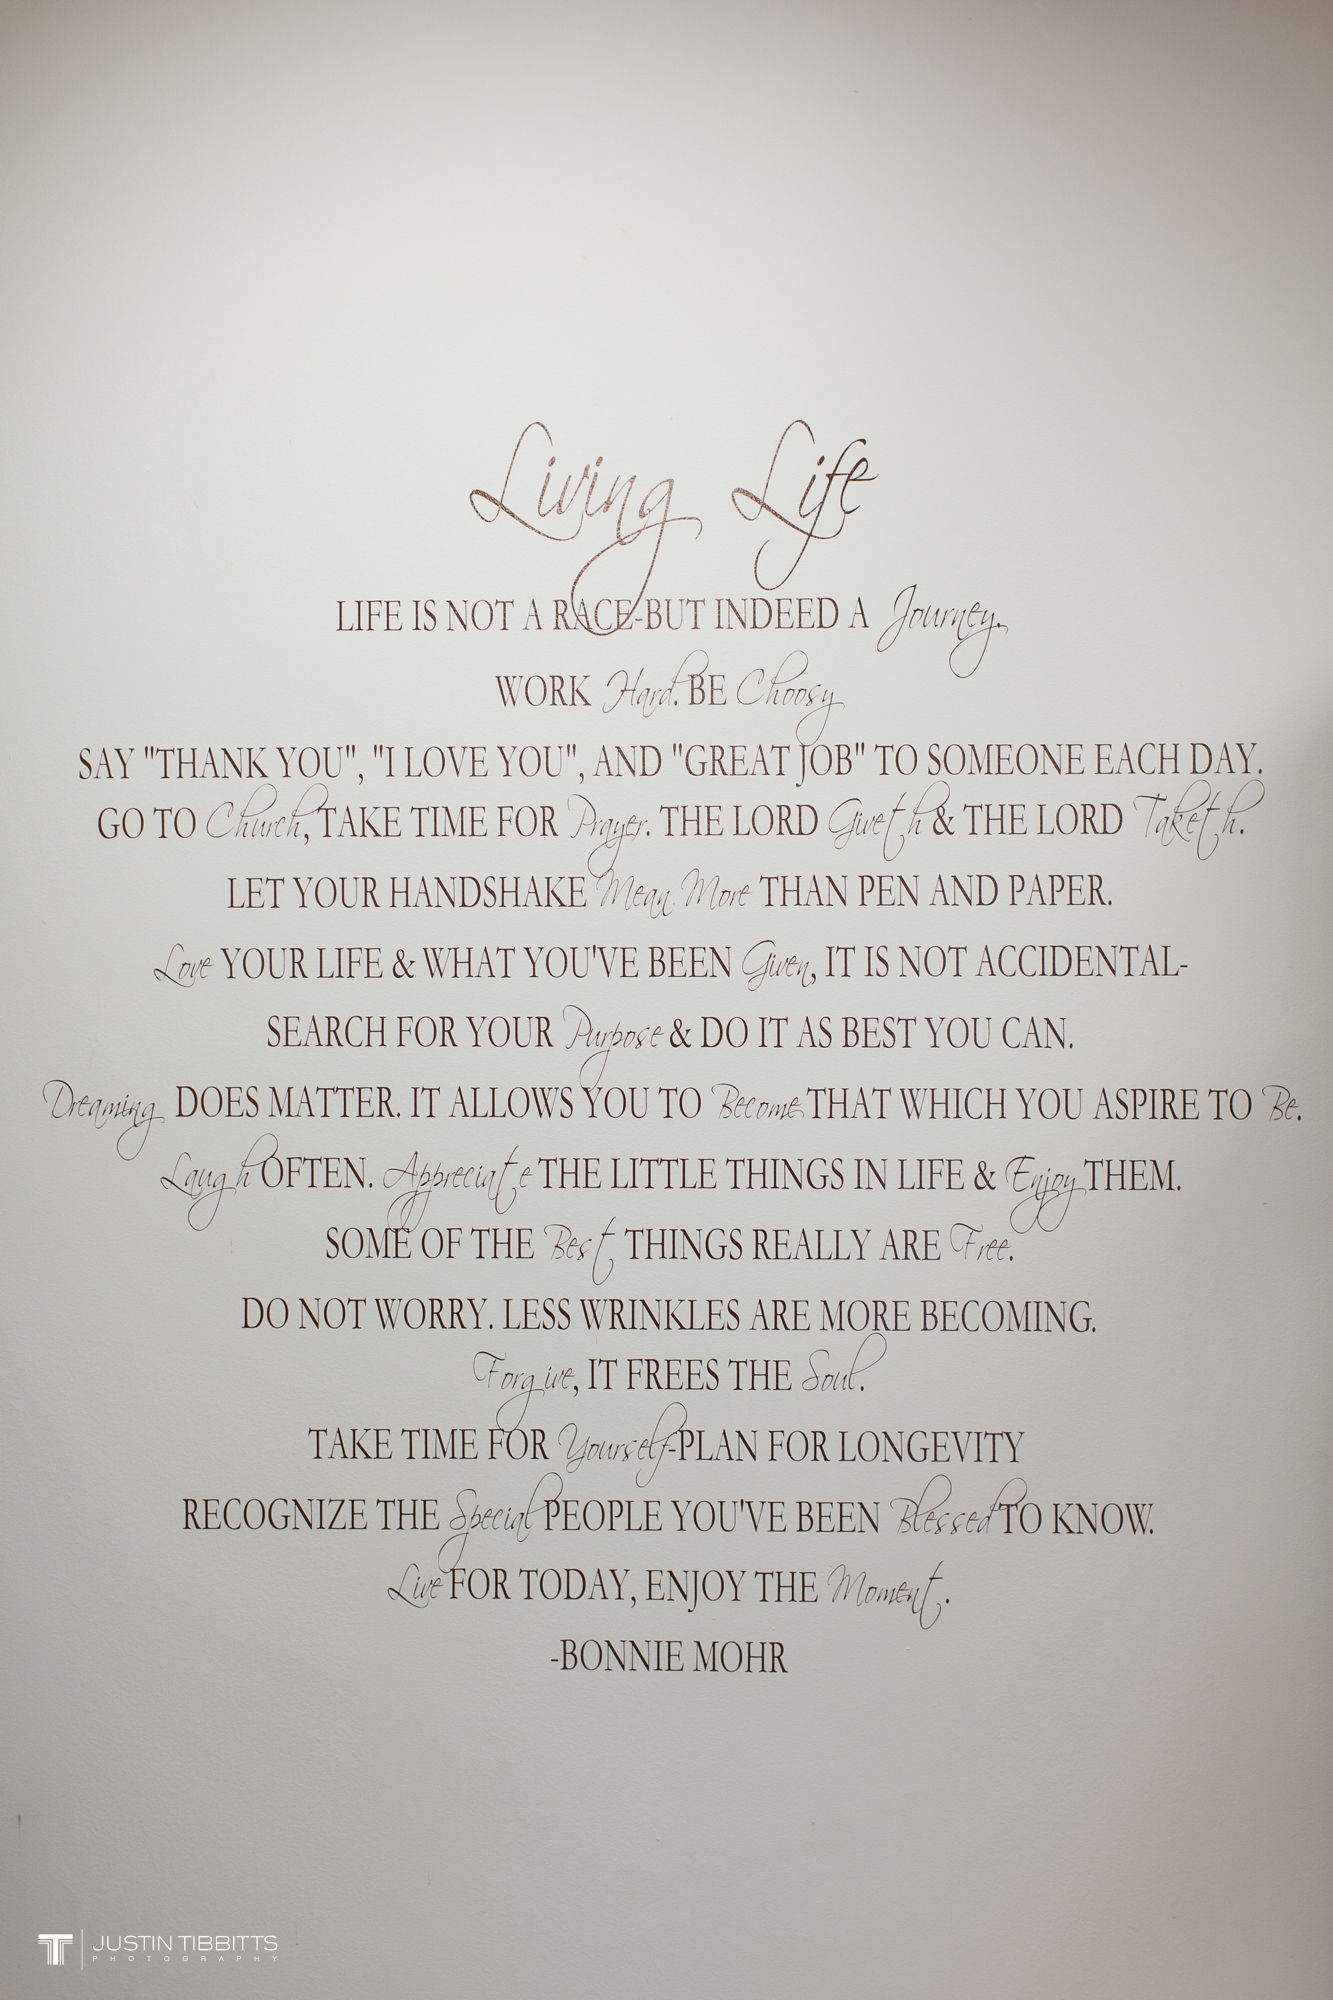 Living Life
LIFE IS NOT A RACE-BUT INDEED A Journey.
WORK Hard. BE Choosy
SAY "THANK YOU", "I LOVE YOU", AND "GREAT JOB" TO SOMEONE EACH DAY.
GO TO Church, TAKE TIME FOR Prayer. THE LORD Giveth & THE LORD Taketh.
LET YOUR HANDSHAKE Mean More THAN PEN AND PAPER.
Love YOUR LIFE & WHAT YOU'VE BEEN Given, IT IS NOT ACCIDENTAL-
SEARCH FOR YOUR Purpose & DO IT AS BEST YOU CAN.
Dreaming DOES MATTER. IT ALLOWS YOU TO Become THAT WHICH YOU ASPIRE TO Be.
Laugh OFTEN. Appreciate THE LITTLE THINGS IN LIFE & Enjoy THEM.
SOME OF THE Best THINGS REALLY ARE Free.
DO NOT WORRY. LESS WRINKLES ARE MORE BECOMING.
Forgive, IT FREES THE Soul.
TAKE TIME FOR Yourself-PLAN FOR LONGEVITY
RECOGNIZE THE Special PEOPLE YOU'VE BEEN Blessed TO KNOW.
Live FOR TODAY, ENJOY THE Moment.
-BONNIE MOHR
JUSTIN TIBBITTS
PHOTOGRAPHY